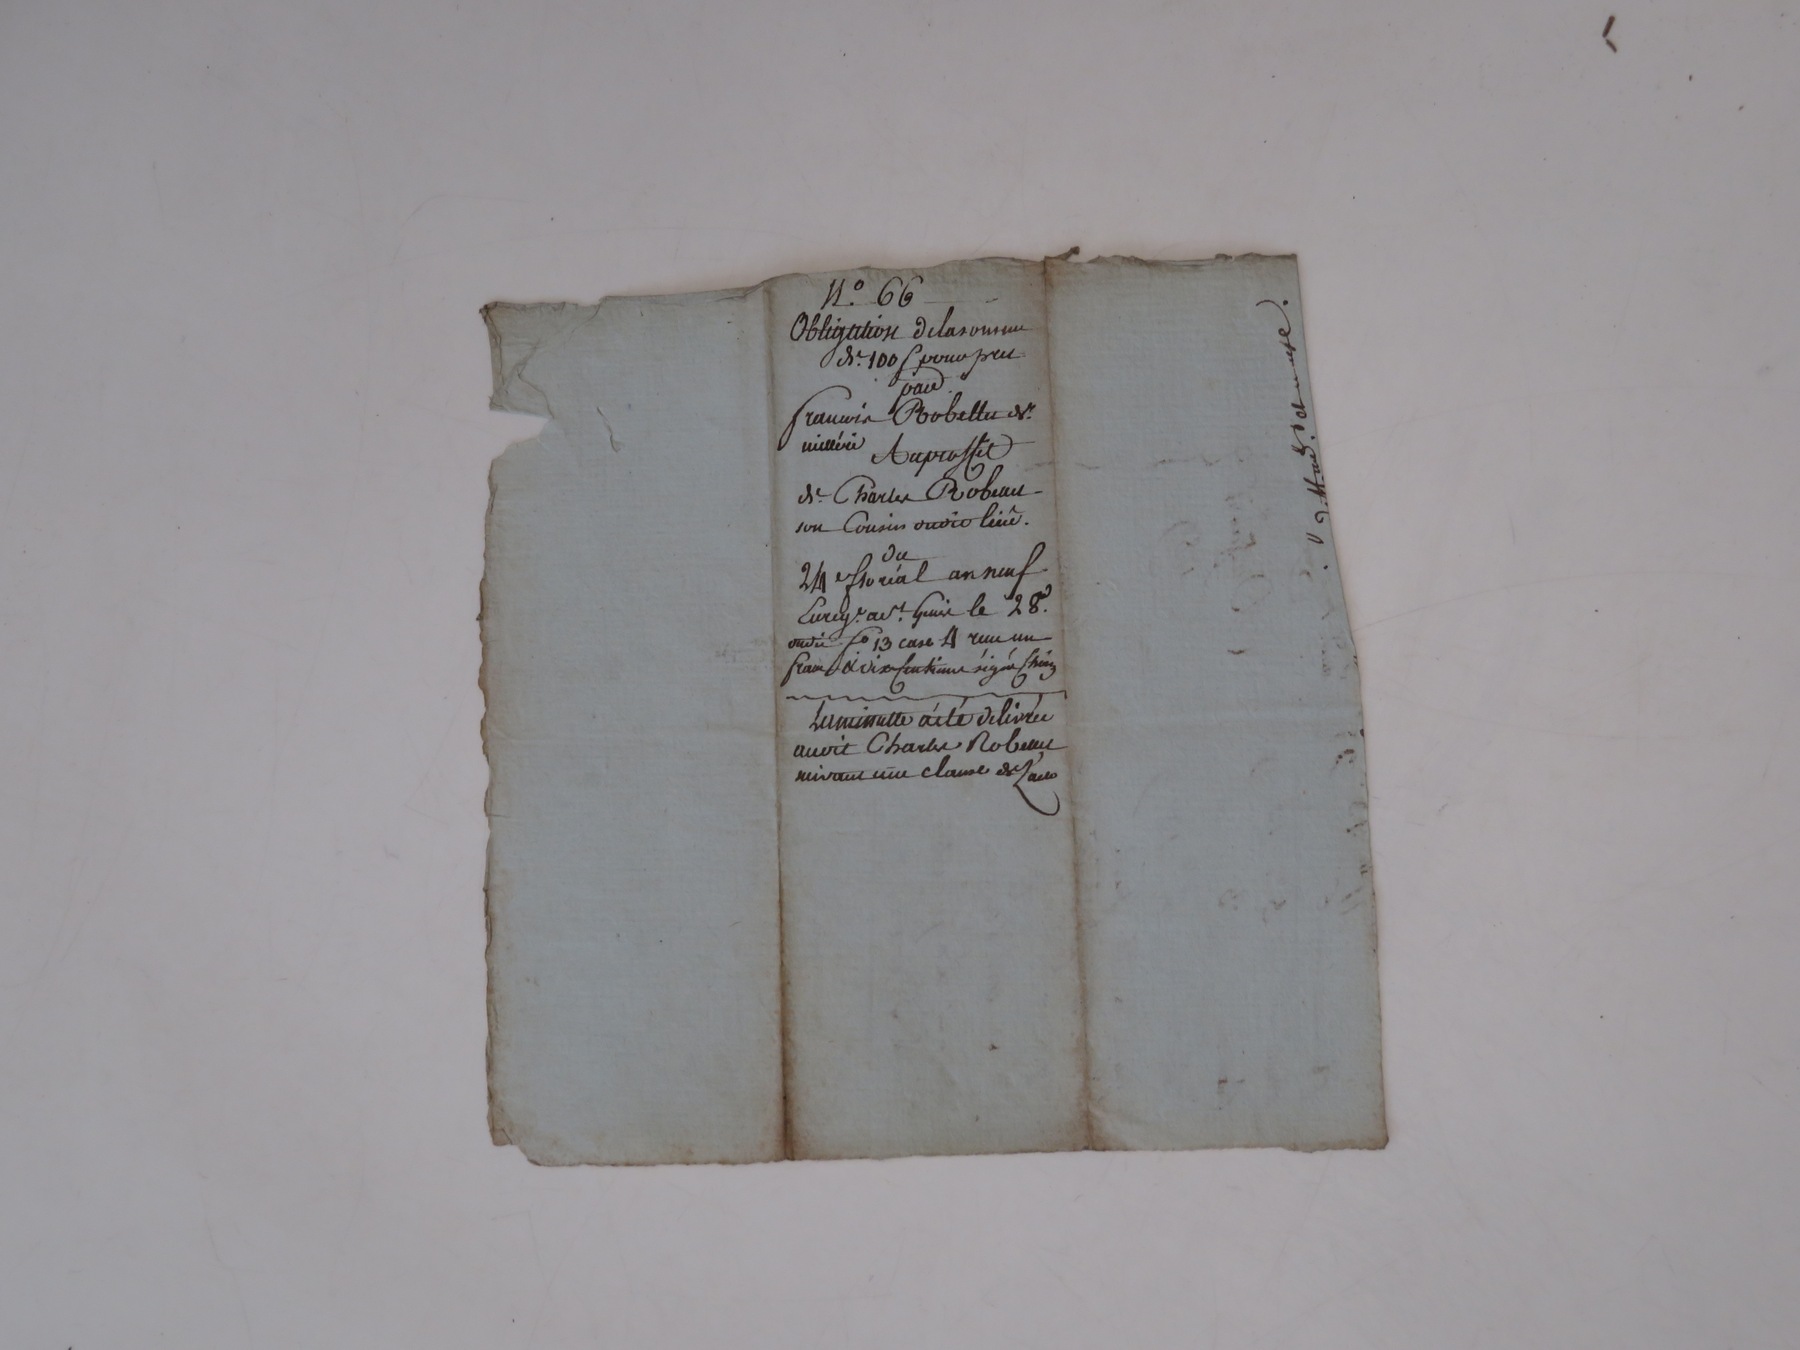 N.o 66
Obligation de la somme
de 100 f pour pret
par
francois Robellu de
Au proffit
de Charles Robeau
son Cousin dudit lieu.
du
24 floréal an neuf
Enreg.é a le 28 d.
dudit f.o 13 case 4 reçu un
franc dix Centimes signé
La minutte a été delivrée
audit Charles Robeau
suivant une clause de l'acte